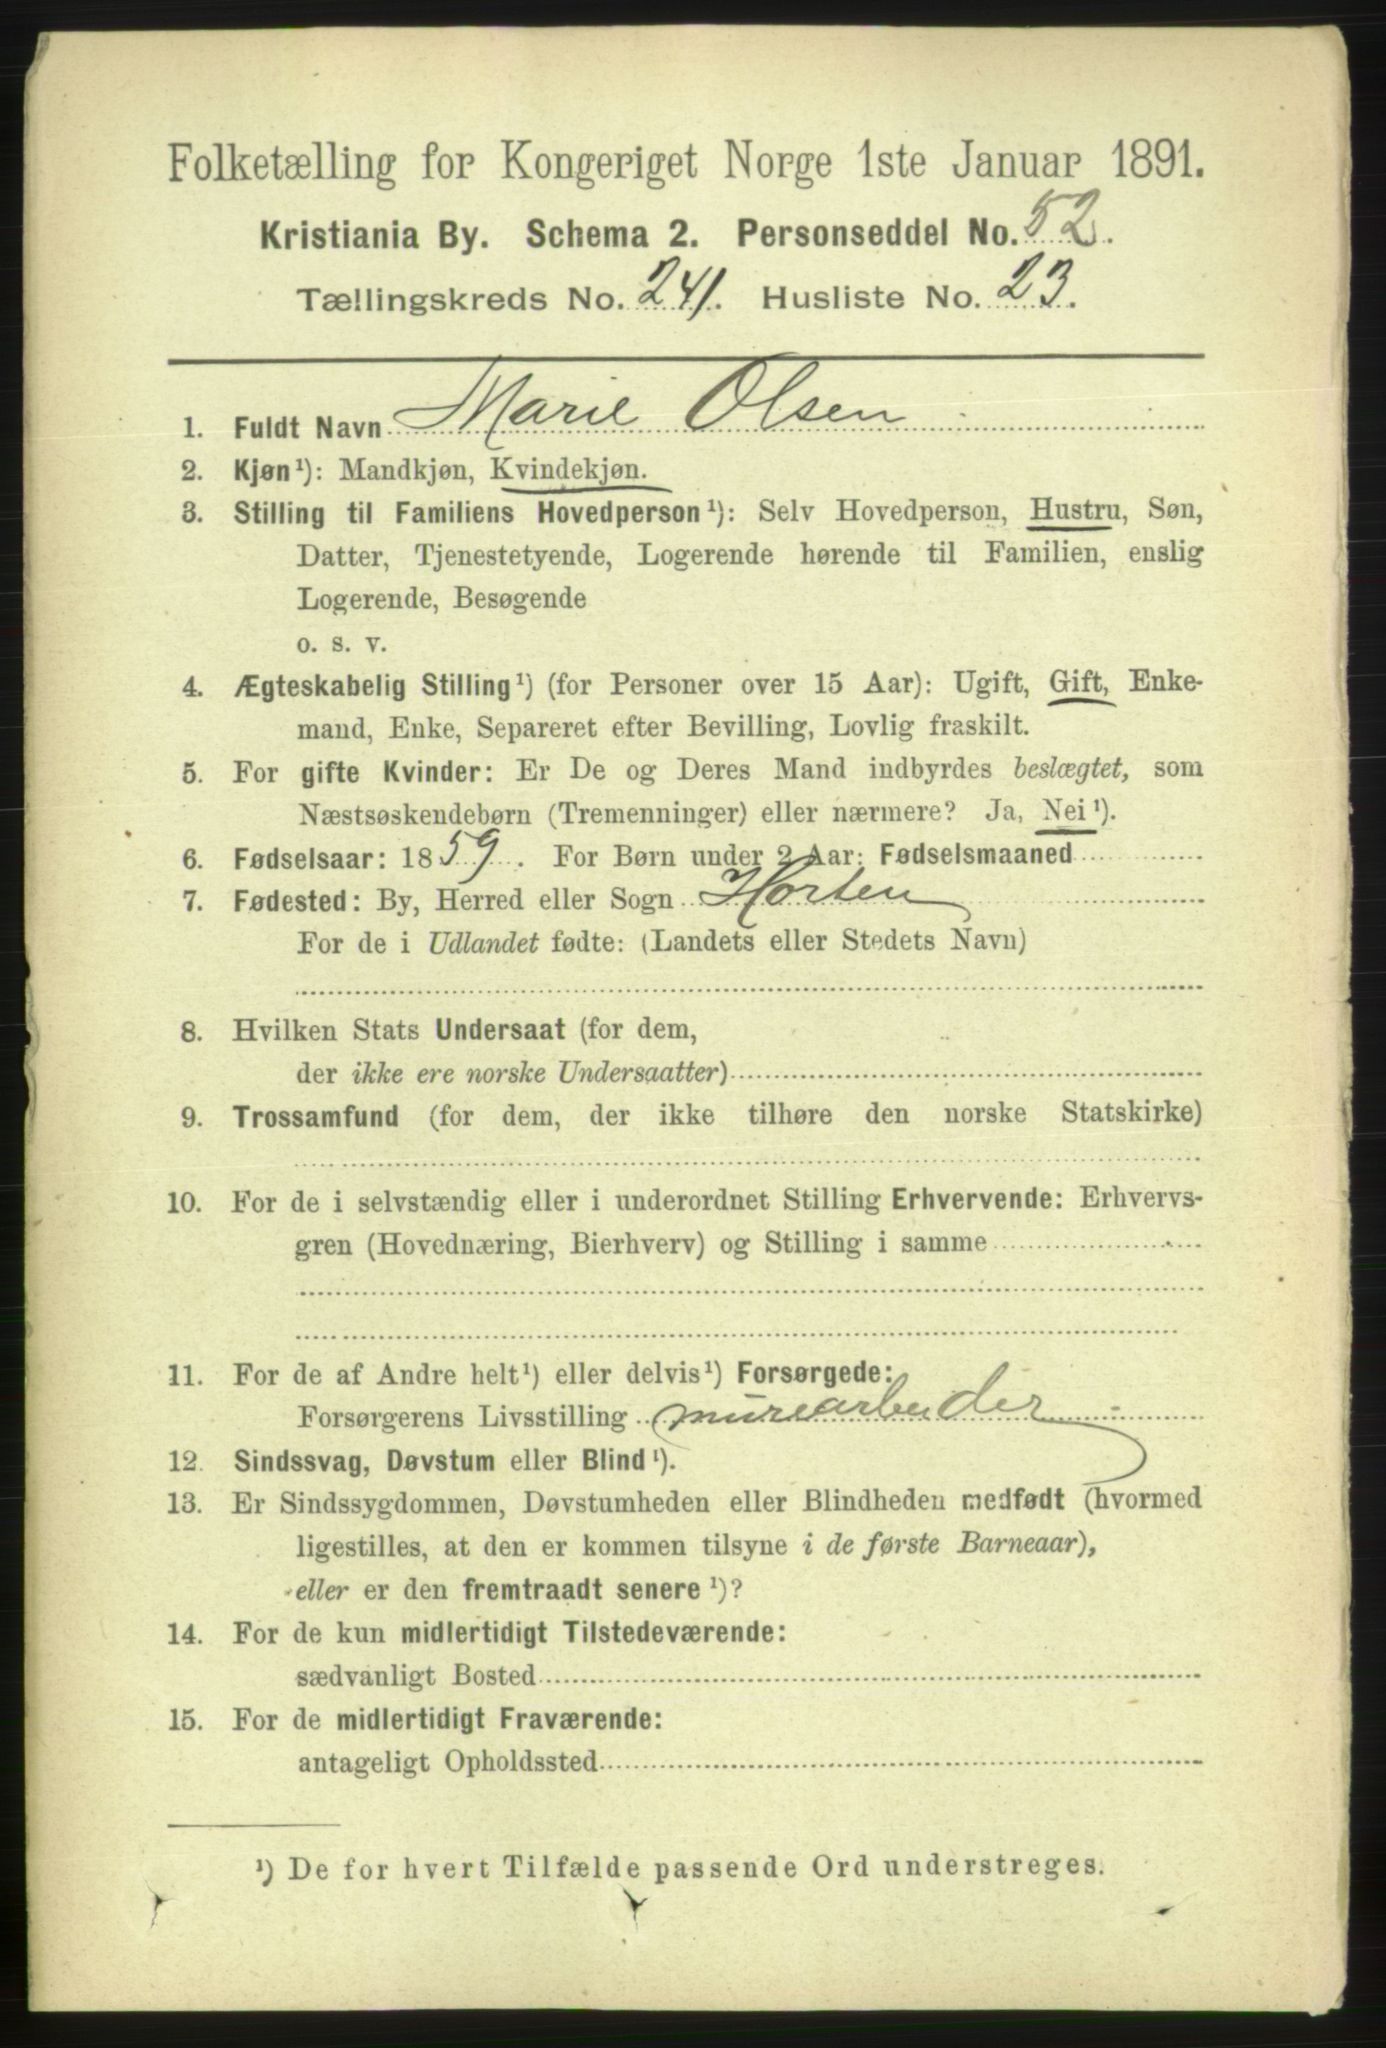 Folketælling for Kongeriget Norge 1ste Januar 1891.
Kristiania By. Schema 2. Personseddel No. 52.
Tællingskreds No. 241. Husliste No. 23.
1. Fuldt Navn Marie Olsen
2. Kjøn¹): Mandkjøn, Kvindekjøn.
3. Stilling til Familiens Hovedperson¹): Selv Hovedperson, Hustru, Søn,
Datter, Tjenestetyende, Logerende hørende til Familien, enslig
Logerende, Besøgende
o. s. v.
4. Ægteskabelig Stilling¹) (for Personer over 15 Aar): Ugift, Gift, Enke-
mand, Enke, Separeret efter Bevilling, Lovlig fraskilt.
5. For gifte Kvinder: Er De og Deres Mand indbyrdes beslægtet, som
Næstsøskendebørn (Tremenninger) eller nærmere? Ja, Nei¹).
6. Fødselsaar: 1859. For Børn under 2 Aar: Fødselsmaaned
7. Fødested: By, Herred eller Sogn Horten
For de i Udlandet fødte: (Landets eller Stedets Navn)
8. Hvilken Stats Undersaat (for dem,
der ikke ere norske Undersaatter)
9. Trossamfund (for dem, der ikke tilhøre den norske Statskirke)
10. For de i selvstændig eller i underordnet Stilling Erhvervende: Erhvervs-
gren (Hovednæring, Bierhverv) og Stilling i samme
11. For de af Andre helt¹) eller delvis¹) Forsørgede:
Forsørgerens Livsstilling murearbeider
12. Sindssvag, Døvstum eller Blind¹).
13. Er Sindssygdommen, Døvstumheden eller Blindheden medfødt (hvormed
ligestilles, at den er kommen tilsyne i de første Barneaar),
eller er den fremtraadt senere¹)?
14. For de kun midlertidigt Tilstedeværende:
sædvanligt Bosted
15. For de midlertidigt Fraværende:
antageligt Opholdssted
¹) De for hvert Tilfælde passende Ord understreges.